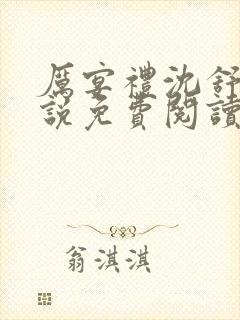 厲宴禮沈舒
說免費閱讀
翁淇淇